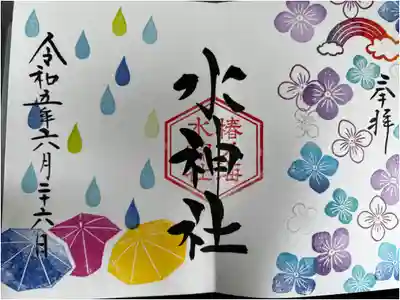 奉拝
水神社
椿海
令和五年六月二十六日